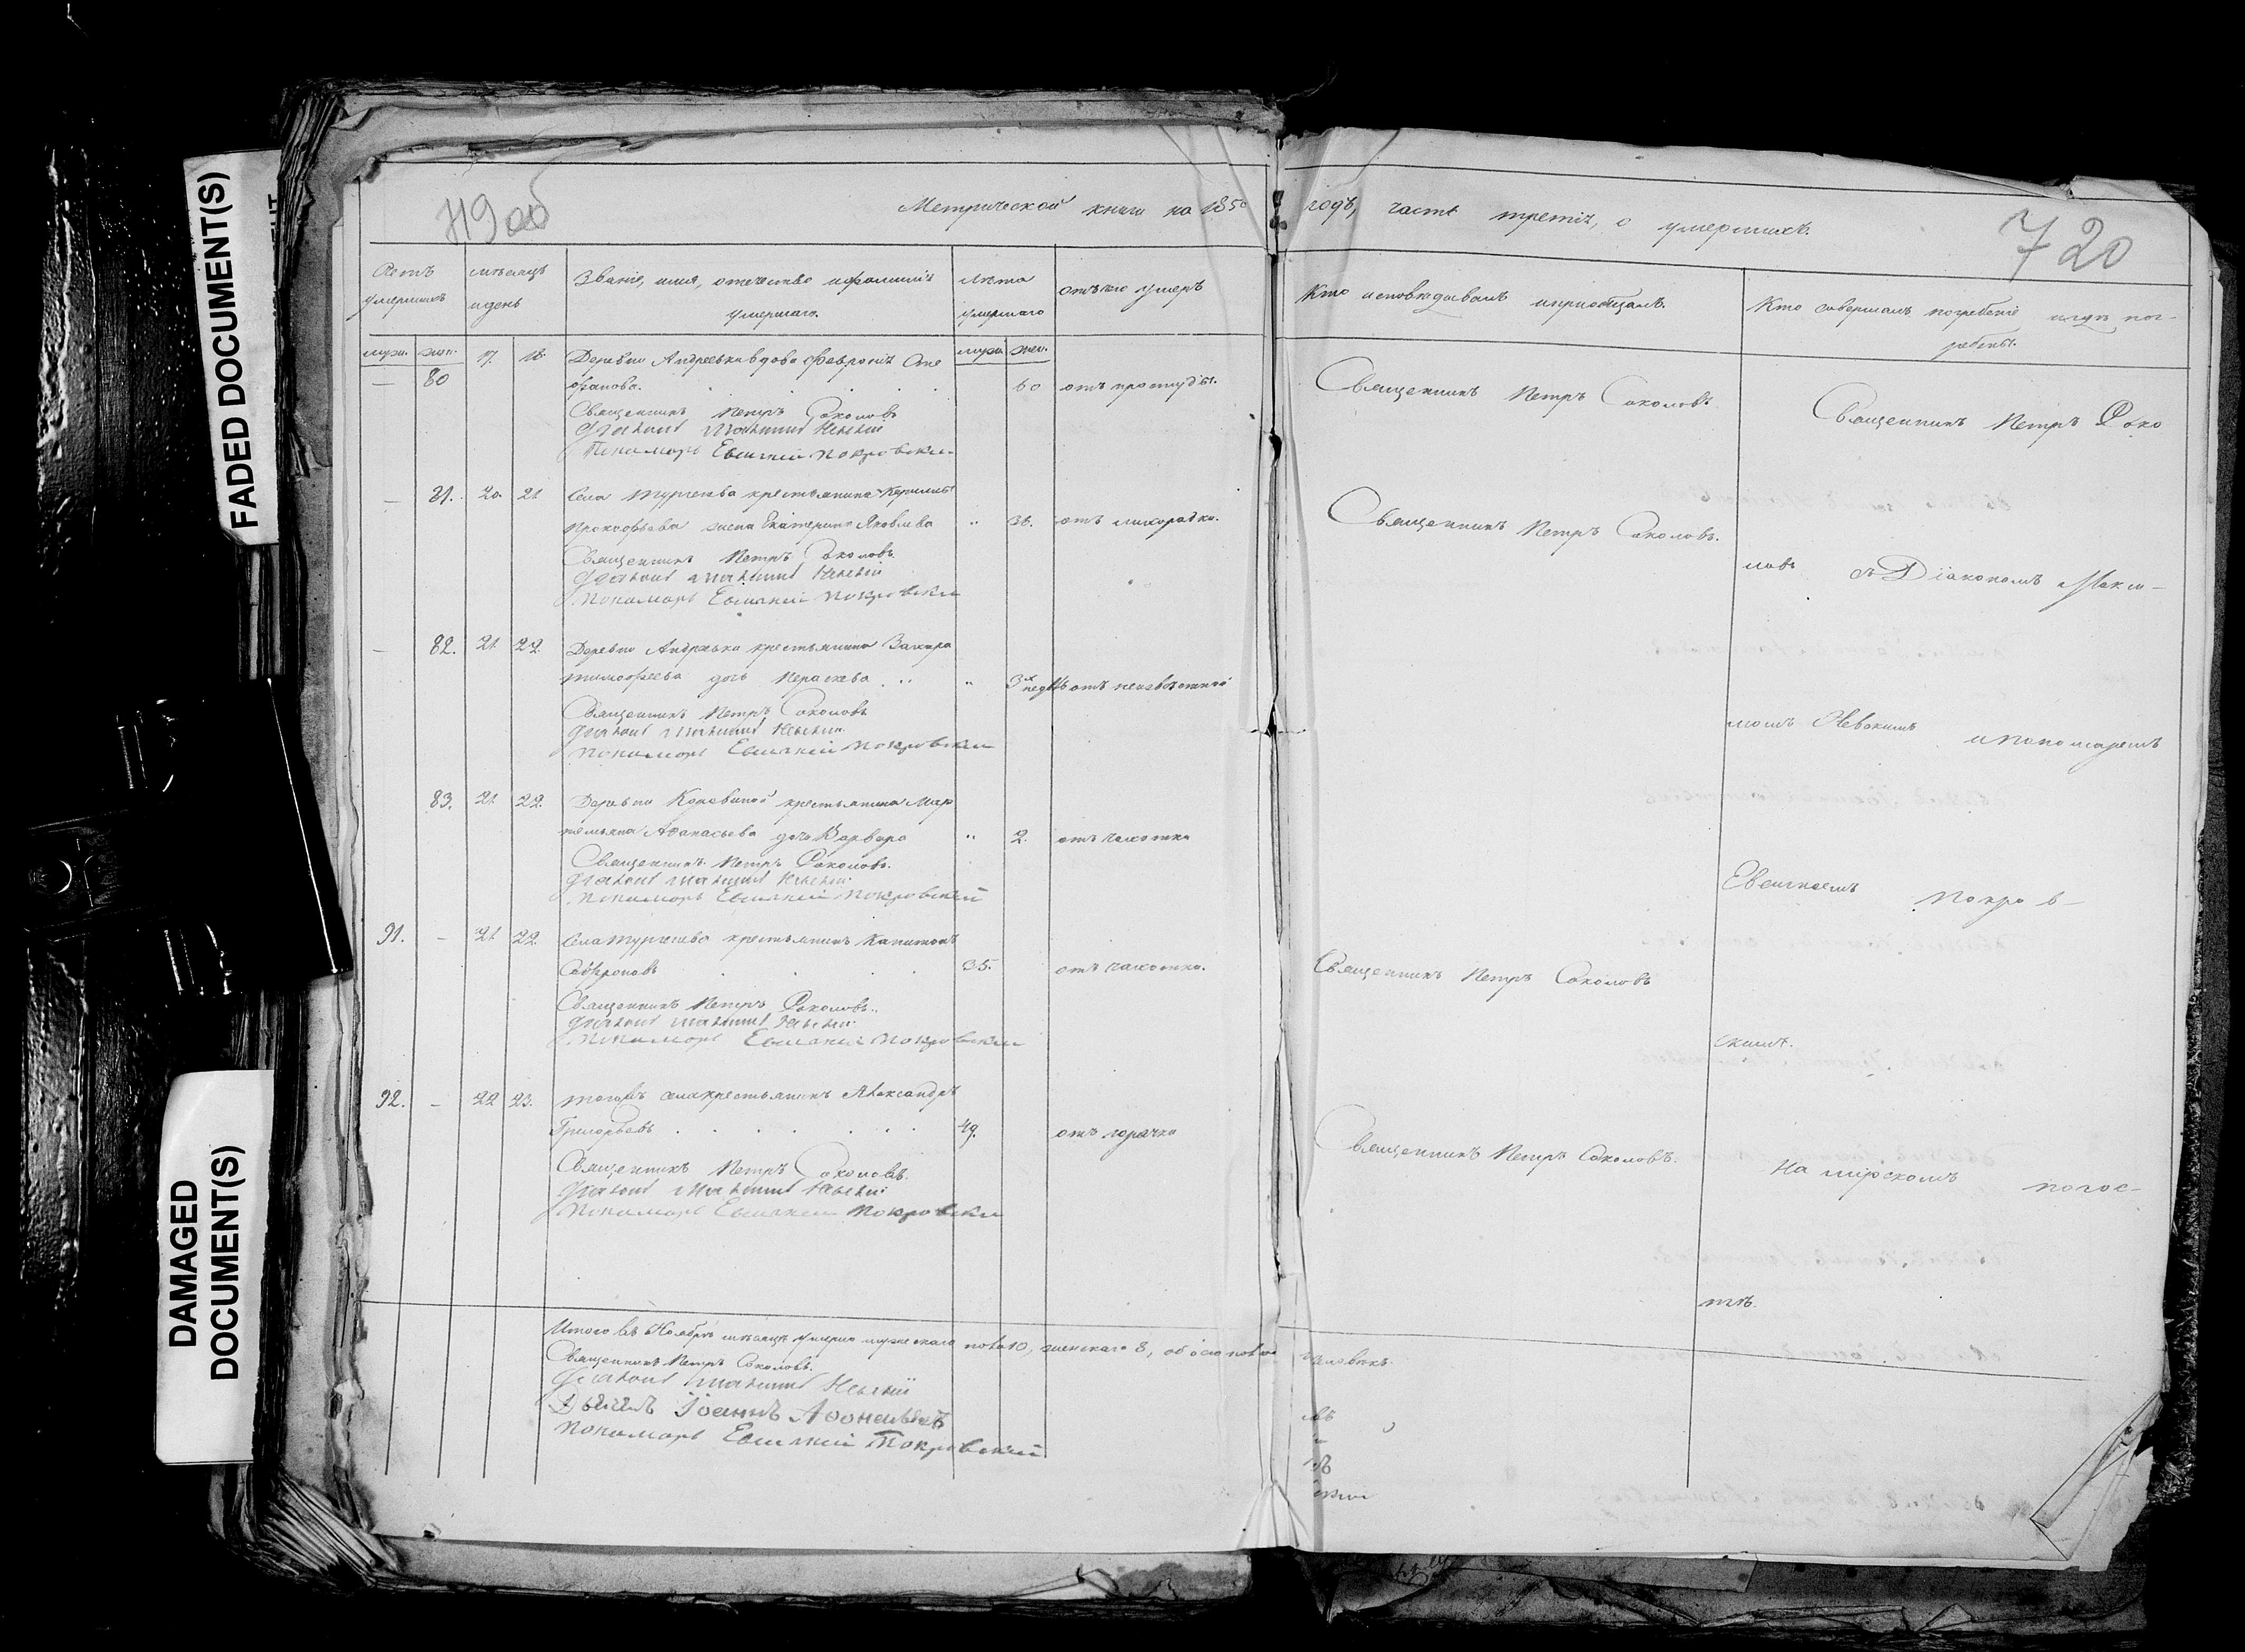 FADED DOCUMENT(S)
DAMAGED DOCUMENT(S)
Метрической книги на 1850
Счетъ умершихъ
мѣсяцъ и день
Званіе, имя, отечество и фамилія умершаго.
Лѣта умершаго
отъ чего умеръ
муж. жен. 17. 18. Деревни Андреевки вдова Февронія Сте
муж. жен.
— 80
фанова. 60 отъ простуды.
Священникъ Петръ Соколовъ
Діаконъ Максимъ Невскій
Пономарь Евгеній Покровскій
— 81. 20. 21 Села Тургенева крестьянина Кирилы
Прокофьева жена Екатерина Яковлева " 36. отъ лихорадки.
Священникъ Петръ Соколовъ.
Діаконъ Максимъ Невскій
Пономарь Евгеній Покровскій
— 82. 21. 22. Деревни Андреевки крестьянина Захара
Тимофеева дочь Параскева " 3х недѣль отъ неизвѣстной
Священникъ Петръ Соколовъ
Діаконъ Максимъ Невскій
Пономарь Евгеній Покровскій
83. 21. 22. Деревни крестьянина Мар
темьяна Афанасьева дочь Варвара " 2. отъ чахотки
Священникъ Петръ Соколовъ.
Діаконъ Максимъ Невскій
Пономарь Евгеній Покровскій
91. — 21 22. Села Тургенева крестьянинъ Капитонъ
Софроновъ 35. отъ чахотки.
Священникъ Петръ Соколовъ.
Діаконъ Максимъ Невскій
Пономарь Евгеній Покровскій
92. — 22 23. Тогожъ села крестьянинъ Александръ
Григорьевъ 49. отъ горячки
Священникъ Петръ Соколовъ.
Діаконъ Максимъ Невскій
Пономарь Евгеній Покровскій
Итого въ Ноябрѣ мѣсяцѣ умерло мужескаго пола 10, женскаго 8, обоего пола
Священникъ Петръ Соколовъ.
Діаконъ Максимъ Невскій
Дьячекъ Іоаннъ
Пономарь Евгеній Покровскій
годъ, часть третія, о умершихъ.
720
Кто исповѣдывалъ и пріобщалъ.
Кто совершалъ погребеніе и гдѣ пог-
ребены.
Священникъ Петръ Соколовъ
Священникъ Петръ Соко
Священникъ Петръ Соколовъ.
ловъ съ Діакономъ Макси-
момъ Невскимъ и пономаремъ
Евгеніемъ Покров-
Священникъ Петръ Соколовъ
скимъ.
Священникъ Петръ Соколовъ.
На мірскомъ погос-
тѣ.
человѣкъ.